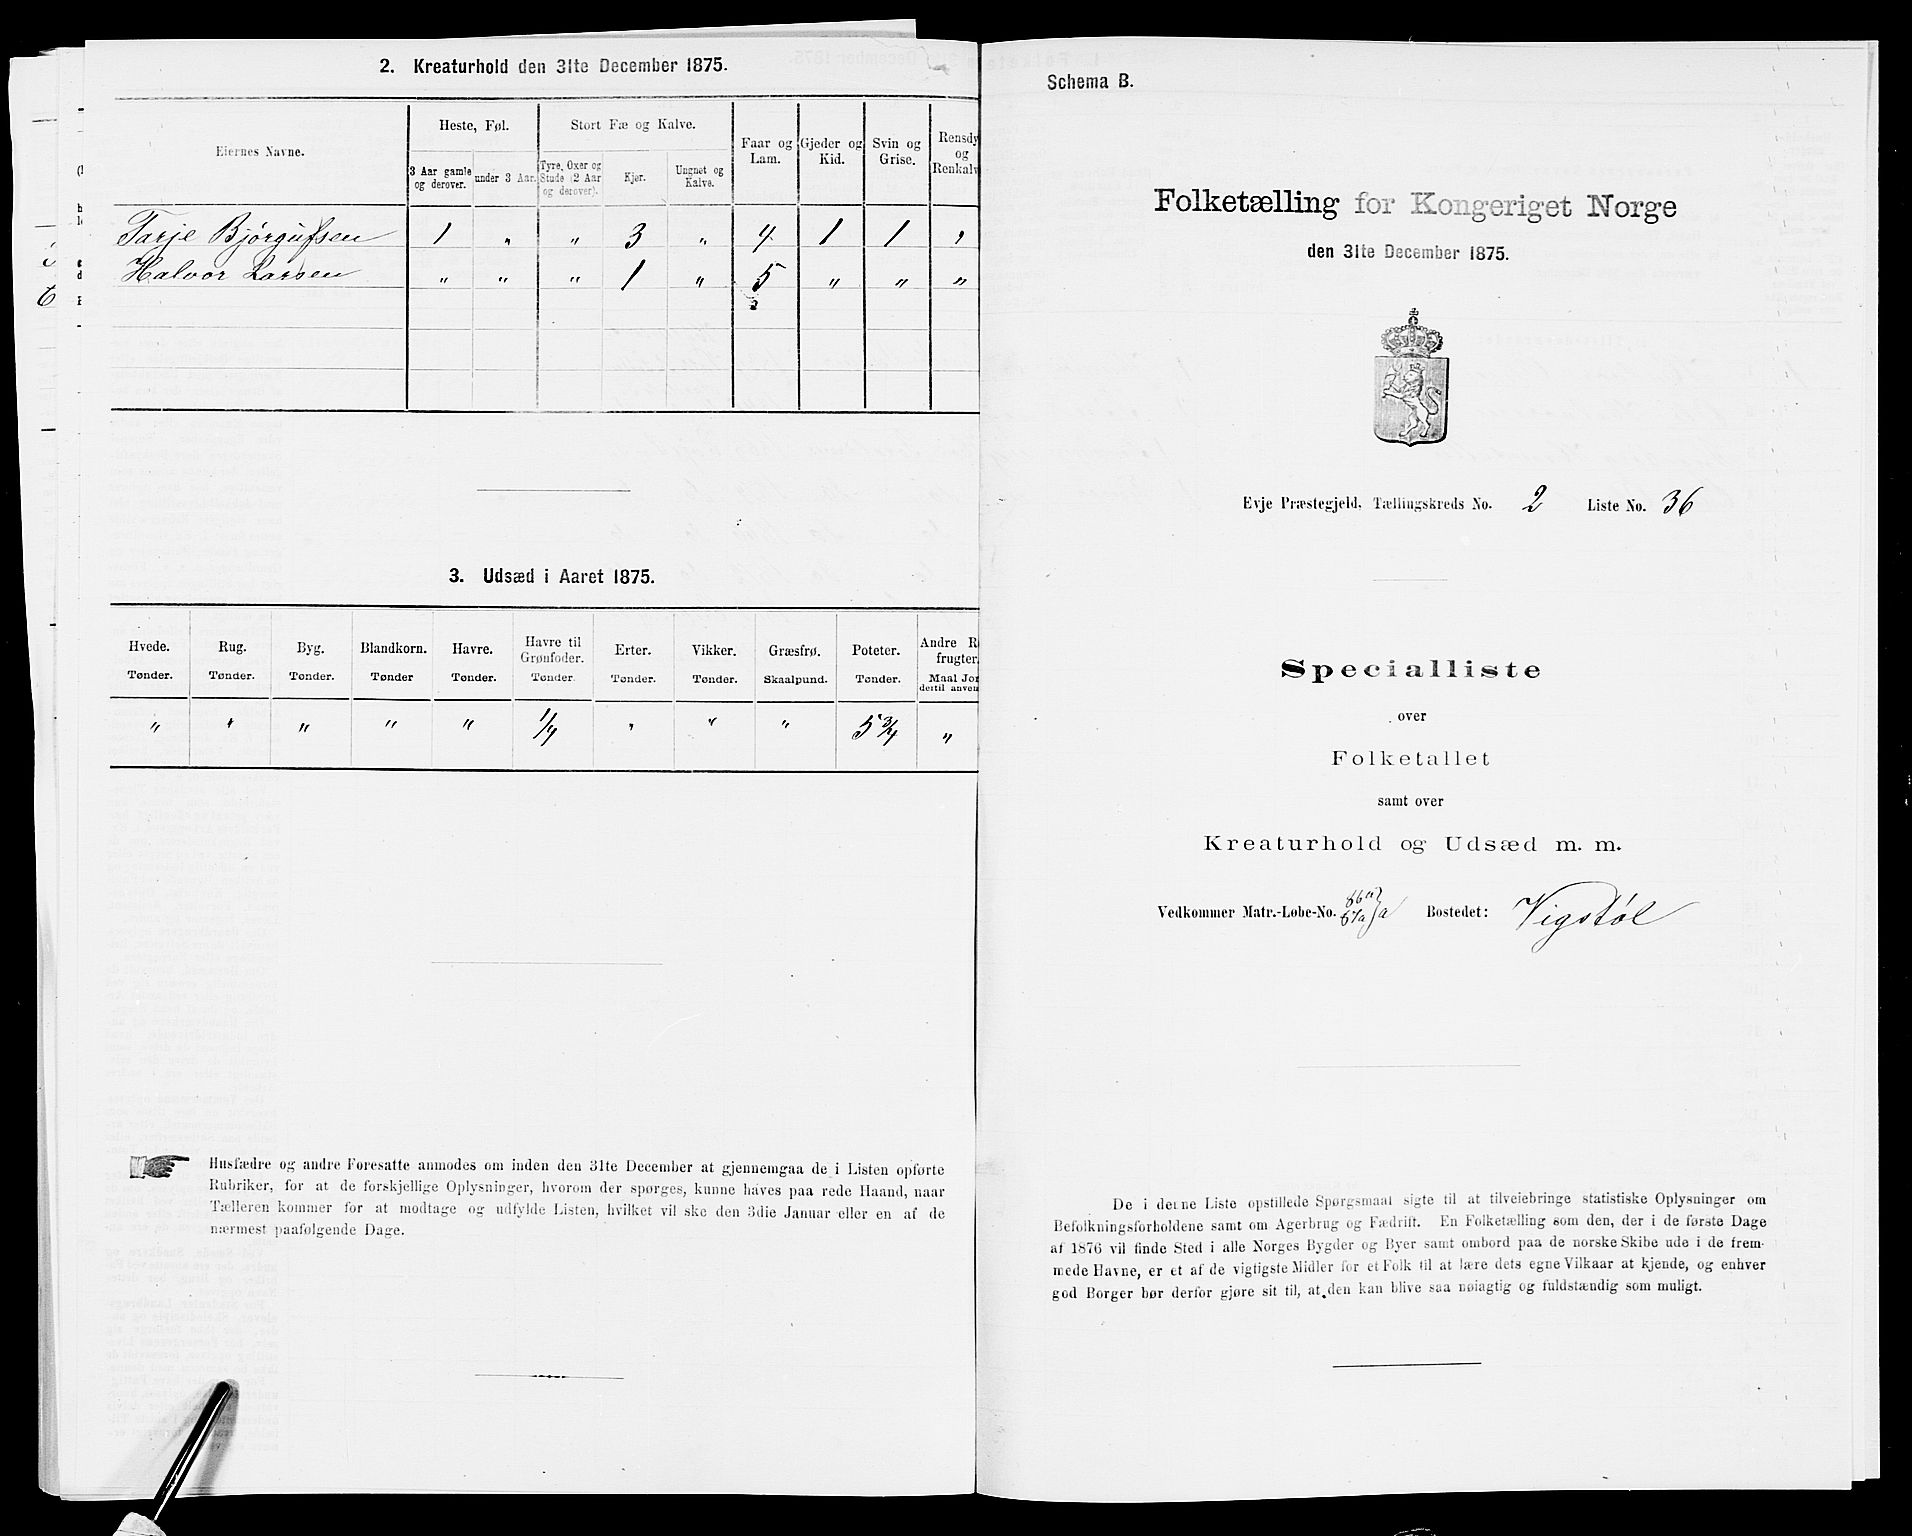 2. Kreaturhold den 31te December 1875.
Eiernes Navne.
Heste, Føl.
Stort Fæ og Kalve.
Faar og Lam.
Gjeder og Kid.
Svin og Grise.
Rensdy
og
Renkalv
3 Aar gamle og derover.
under 3 Aar.
Tyre, Oxer og Stude (2 Aar og derover).
Kjør.
Ungnet og Kalve.
Tarje Bjørgufsen 1 " " 3 " 4 1 1 "
Halvor Larsen " " " 1 " 5 " " "
3. Udsæd i Aaret 1875.
Hvede. Rug. Byg. Blandkorn. Havre. Havre til Grønfoder. Erter. Vikker. Græsfrø. Poteter. Andre R
frugter.
Tønder. Tønder. Tønder. Tønder Tønder. Tønder. Tønder. Tønder. Skaalpund. Tønder. Maal Jor
dertil anven
" " " " " 1/4 " " " 5 3/4 "
Husfædre og andre Foresatte anmodes om inden den 31te December at gjennemgaa de i Listen opførte
Rubriker, for at de forskjellige Oplysninger, hvorom der spørges, kunne haves paa rede Haand, naar
Tælleren kommer for at modtage og udfylde Listen, hvilket vil ske den 3die Januar eller en af de
nærmest paafølgende Dage.
Schema B.
Folketælling for Kongeriget Norge
den 31te December 1875.
Evje Præstegjeld, Tællingskreds No. 2 Liste No. 36
Specialliste
over
Folketallet
samt over
Kreaturhold og Udsæd m. m.
Vedkommer Matr.-Løbe-No. a Bostedet: Vigstøl
De i denne Liste opstillede Spørgsmaal sigte til at tilveiebringe statistiske Oplysninger om
Befolkningsforholdene samt om Agerbrug og Fædrift. En Folketælling som den, der i de første Dage
af 1876 vil finde Sted i alle Norges Bygder og Byer samt ombord paa de norske Skibe ude i de frem-
mede Havne, er et af de vigtigste Midler for et Folk til at lære dets egne Vilkaar at kjende, og enhver
god Borger bør derfor gjøre sit til, at den kan blive saa nøiagtig og fuldstændig som muligt.